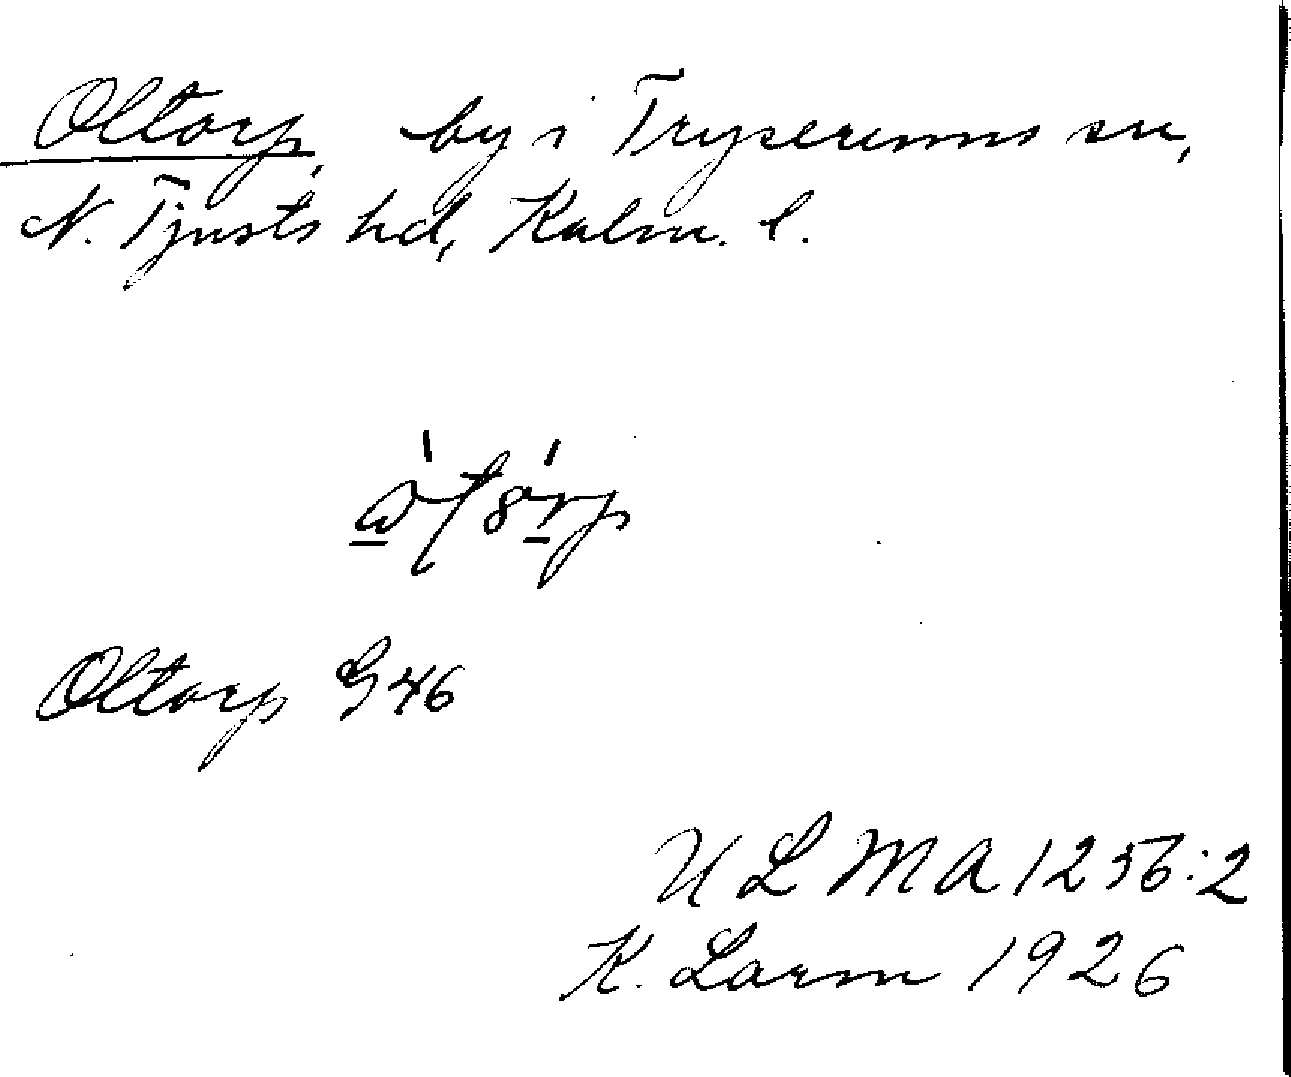 Oltorp, by i Tryserums sn,
N. Tjusts hd, Kalm. l.
Oltorp G 46
ULMA 1256:2
K. Larm 1926